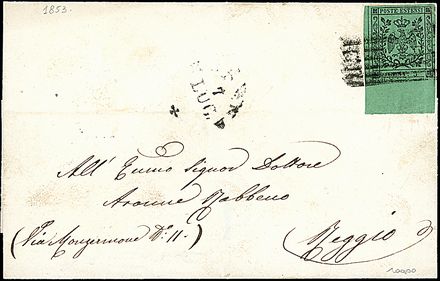 1853.
POSTE ESTENSI
7
LUG
All' Ecmo Signor Dottore
Aronne Rabbeno
(Via Monzermone N: 11.)
Reggio